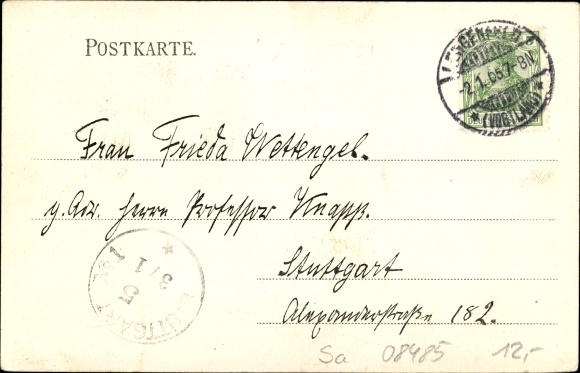 POSTKARTE.
-2.1.05.7-8N.
(VOGTLAND)
Frau Frieda Wettengel.
Herrn Professor Knapp.
Stuttgart
Alexanderstraße 182.
STUTTGART
5
3/1
Sa 08485 12,-